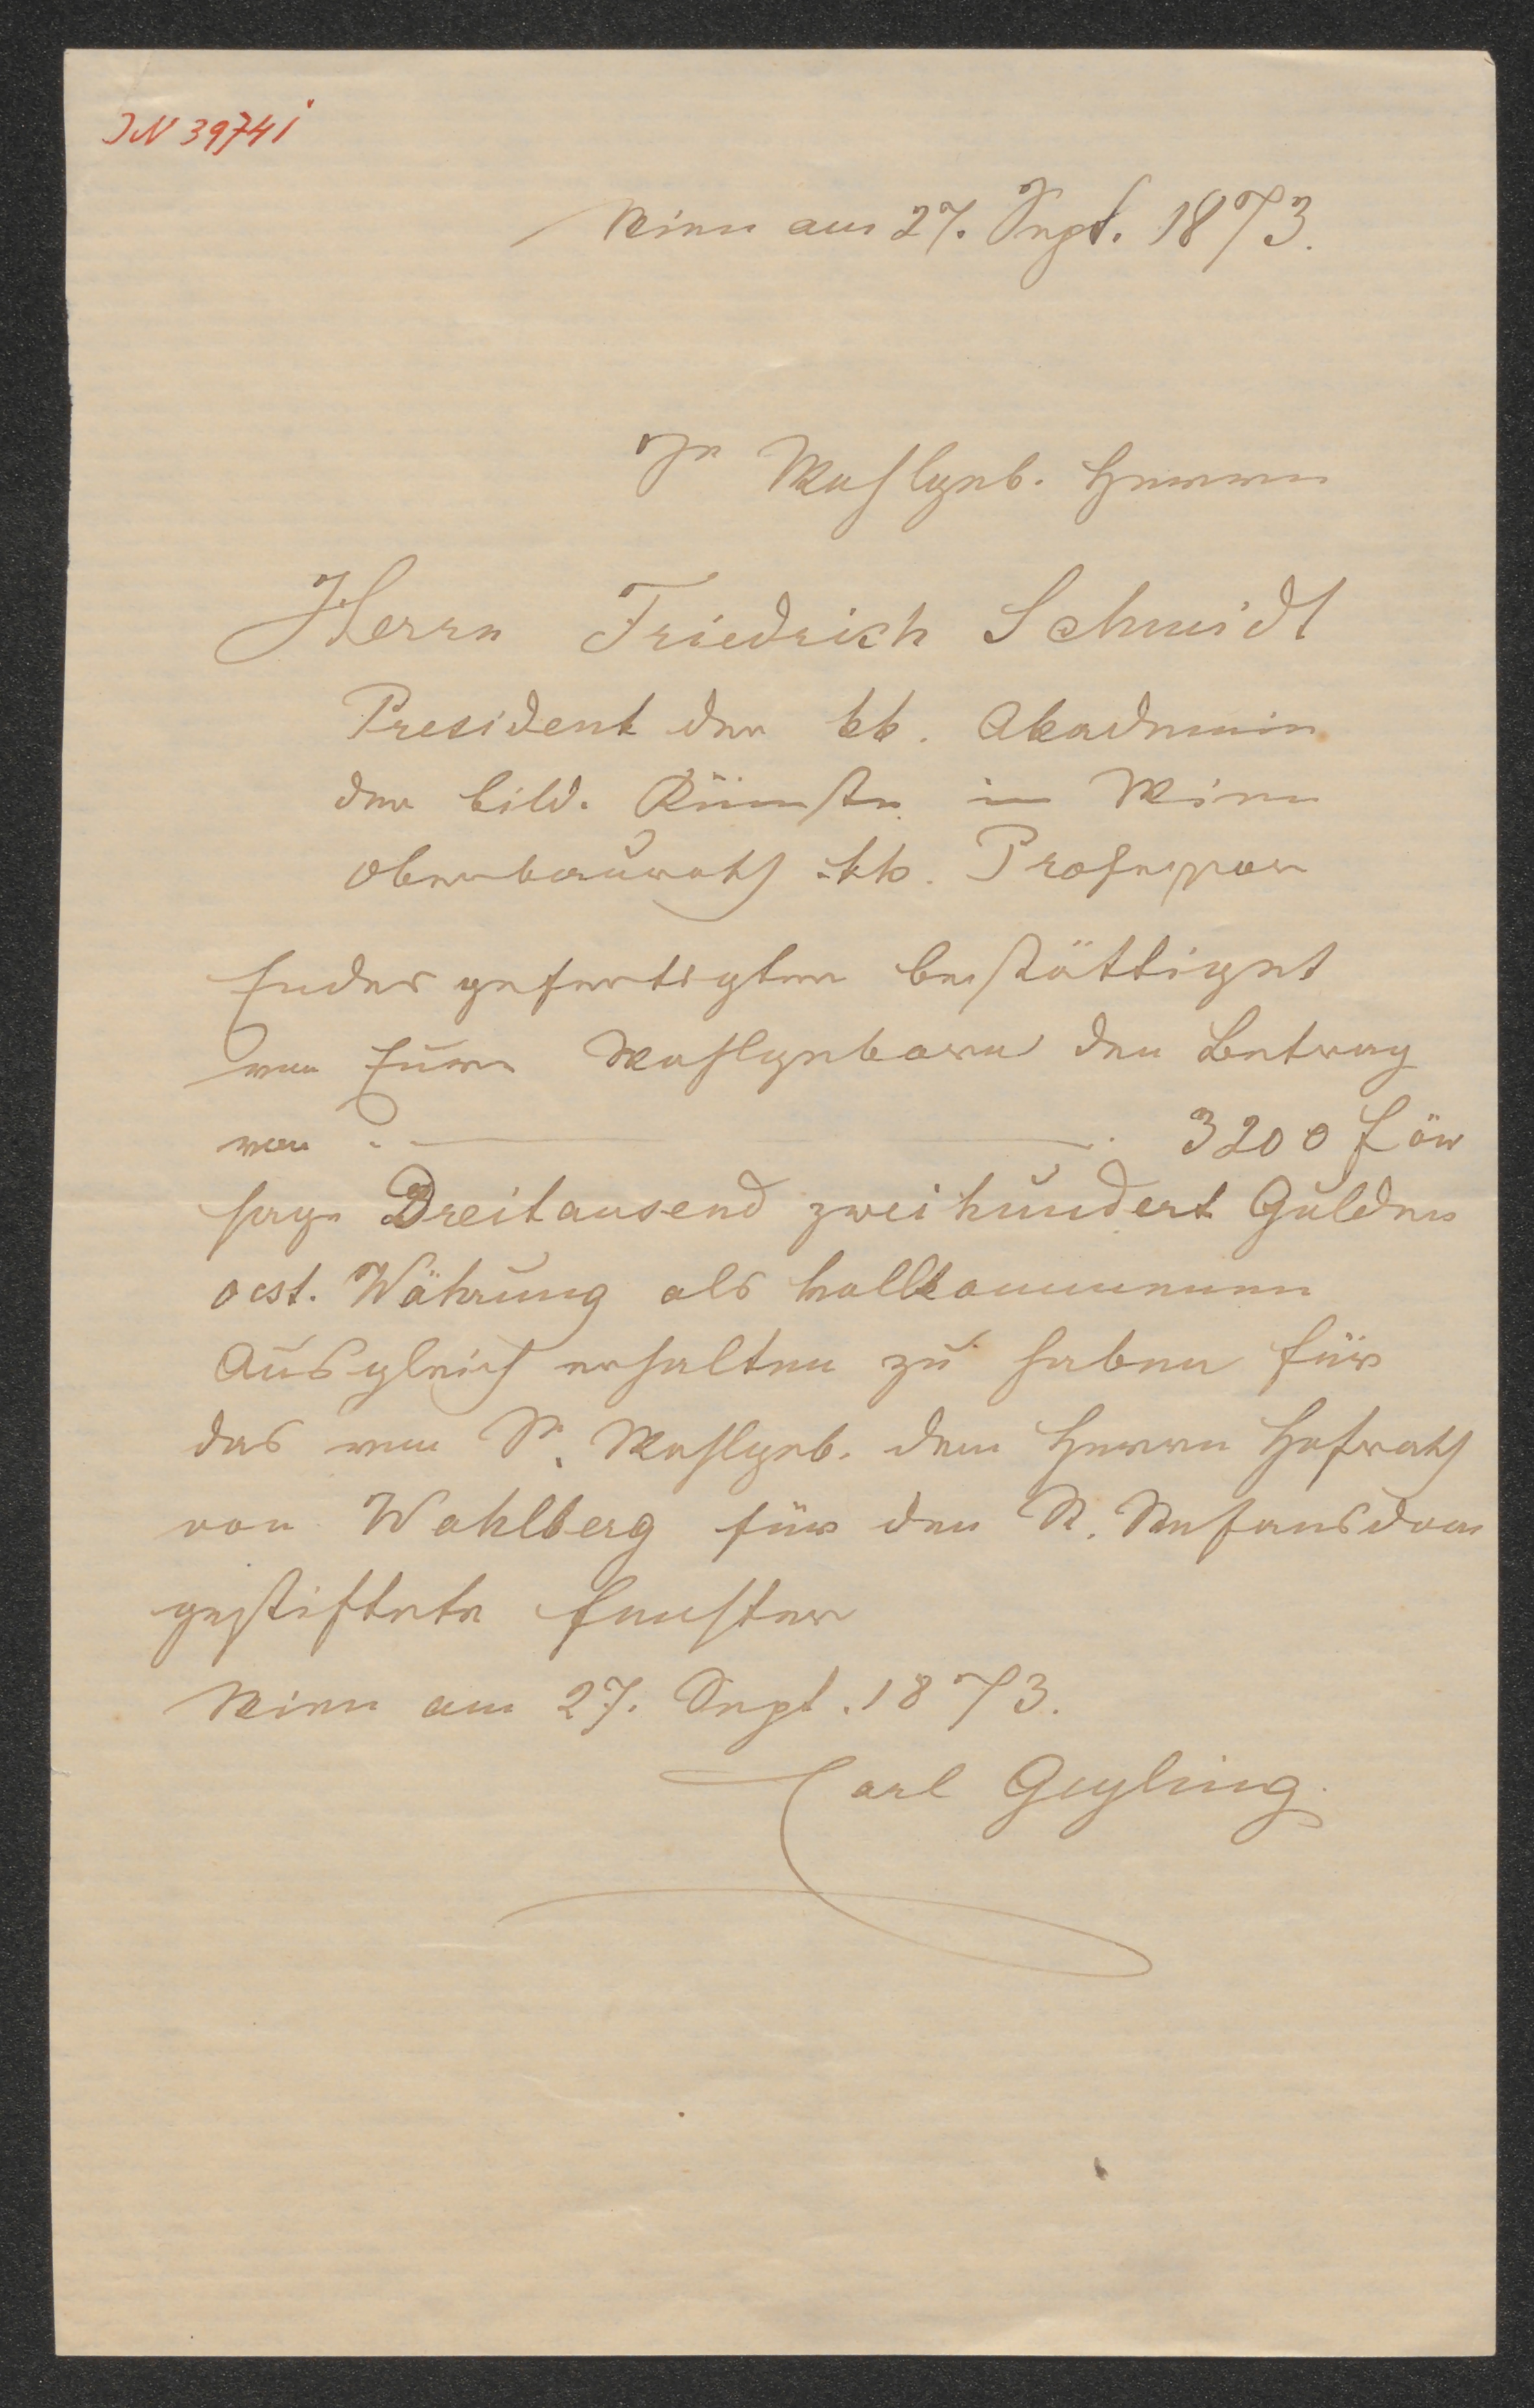 IN 39741
Wien am 27. Sept. 1873.
Sr Wohlgeb. Herren
Herrn Friedrich Schmidt
President der kk. Akademie
der bild. Künste in Wien
Oberbaurath kk. Professor
Endesgefertigter bestättiget
von Euer Wohlgeboren den Betrag
von 3200 f öw
sage Dreitausend zweihundert Gulden
oest. Währung als vollkommenen
Ausgleich erhalten zu haben für
das von Sr. Wohlgeb. dem Herrn Hofrath
von Wahlberg für den St. Stefansdom
gestiftete Fenster
Wien am 27. Sept. 1873.
Carl Geyling